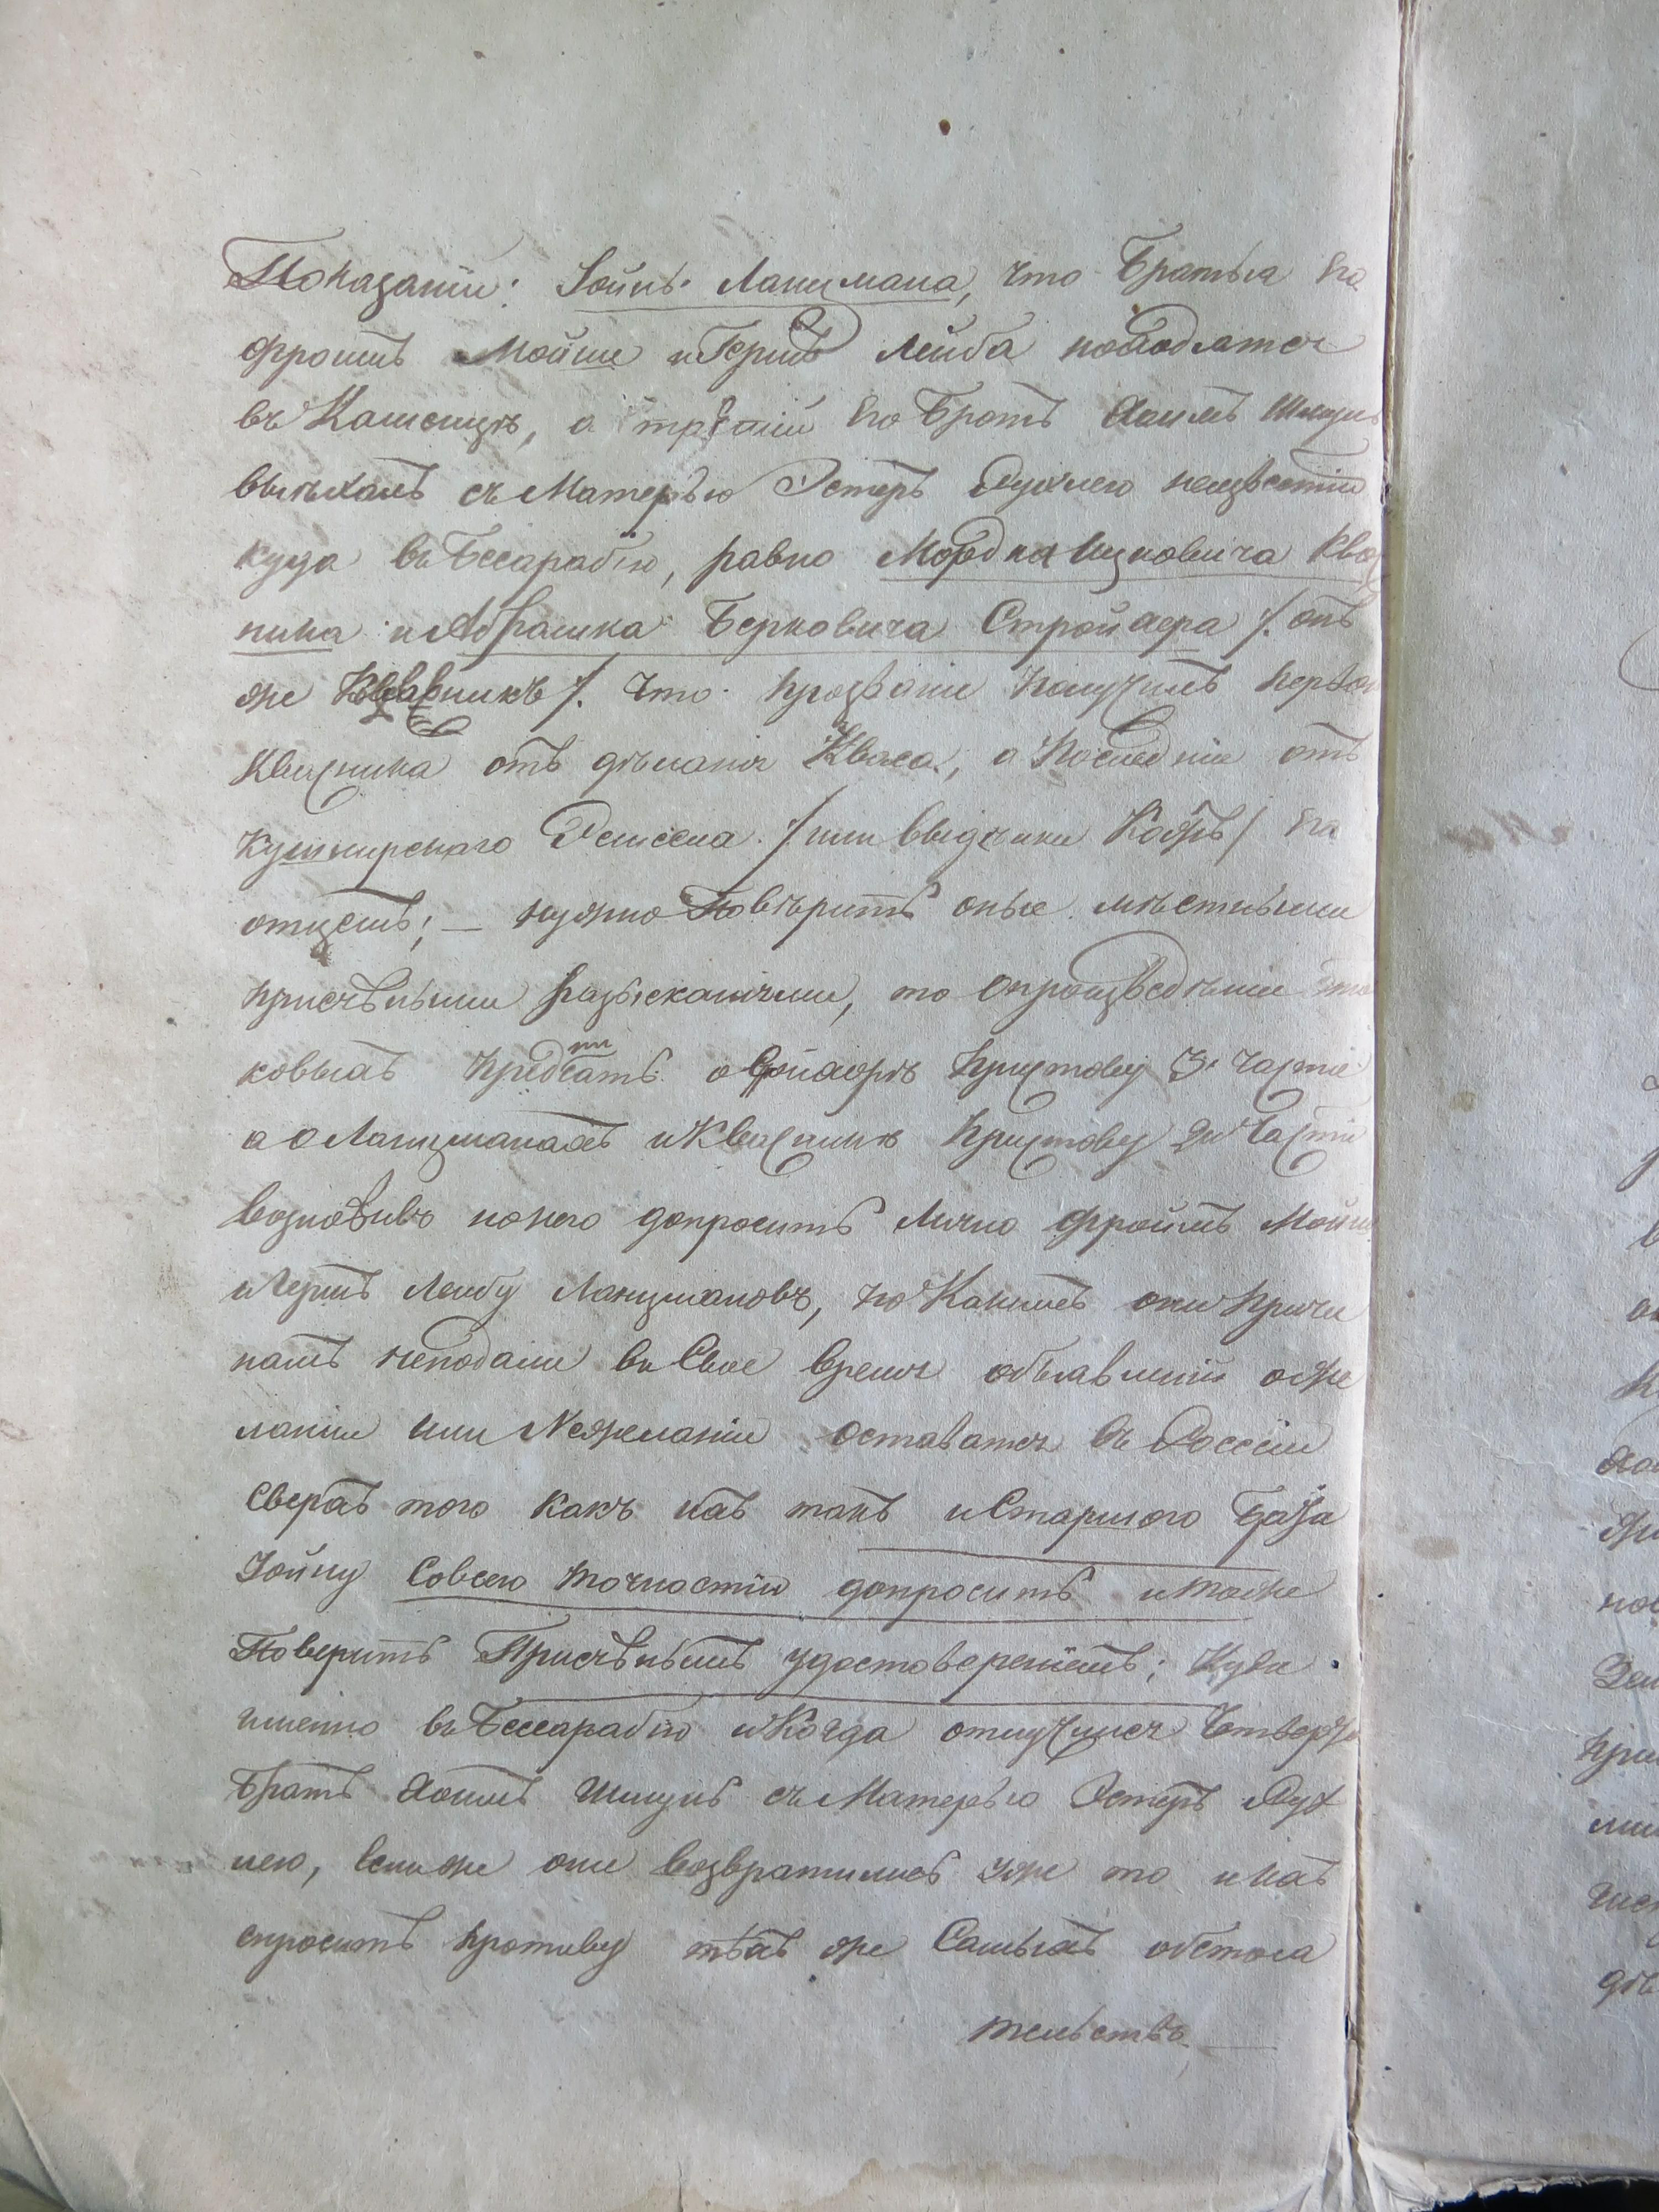 Показаніи: Зойнъ Ланцмана, что Братья Его
Фроимъ Мойше и Гершъ Лейба находятся
въ Каменцѣ, а третій Его Братъ Хаимъ Шлиумъ
выѣхалъ съ Матерью Эстеръ Рухлею неизвестно
куда въ Бессарабію, равно Мордка Ицковича Квас
ника и Абрашка Берковича Стройхера /: онъ
же Квасникъ /: что прозваніе получилъ первой
Квасника отъ дѣланія Кваса, а последніе отъ
Кушнирскаго Ремесла /: или выдѣлки Кожъ / Его
отцемъ; — нужно Повѣрить оные мѣстными
присяжными разысканіями, то о произведеніи та
ковыхъ предписать о Стройхерѣ Приставу 3й Части
а о Ланцманахъ и Квасникѣ Приставу 2й Части
возложивъ на него допросить Лично Фроимъ Мойше
и Гершъ Лейбу Ланцмановъ, по Какимъ они причи
намъ неподали въ Свое время объявленій о же
ланіи или Нежеланіи оставатся въ Россіи
Сверхъ того какъ ихъ такъ и Старшого Брата
Зойну Совсею точностію допросить и також
Поверить Присяжнымъ удостовереніемъ; Куда
именно въ Бессарабію и Когда отлучился Четверт
Братъ Хаимъ Шлиумъ съ Матерью Эстеръ Рух
лею, Если же они возвратились уже то и ихъ
спросить противу тѣхъ же Самыхъ обстоя
тельствъ